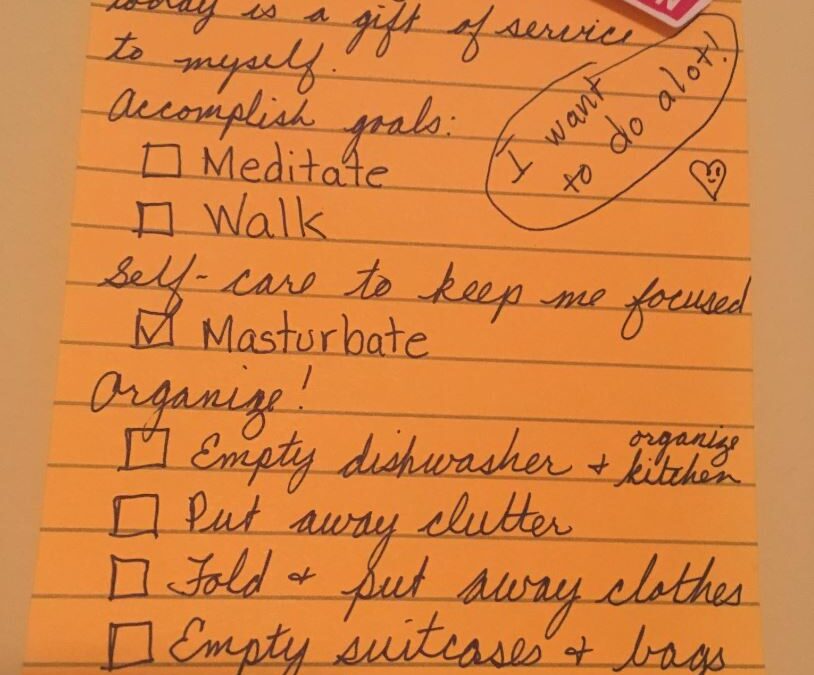 today is a gift of service
to myself.
Accomplish goals:
I want
to do alot!
Meditate
Walk
Self-care to keep me focused
Masturbate
Organize!
Empty dishwasher + organize
kitchen
Put away clutter
Fold + put away clothes
Empty suitcases + bags